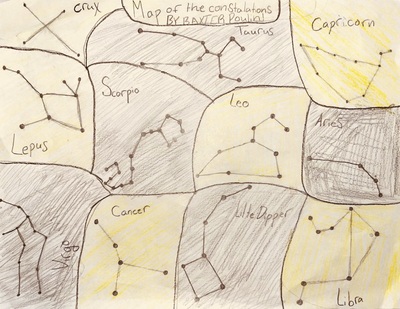 crux
Map of the constalations
BY BAXTER Poulin!
Taurus
Capricorn
Scorpio
Leo
Aries
Lepus
Virgo
Cancer
Lite Dipper
Libra